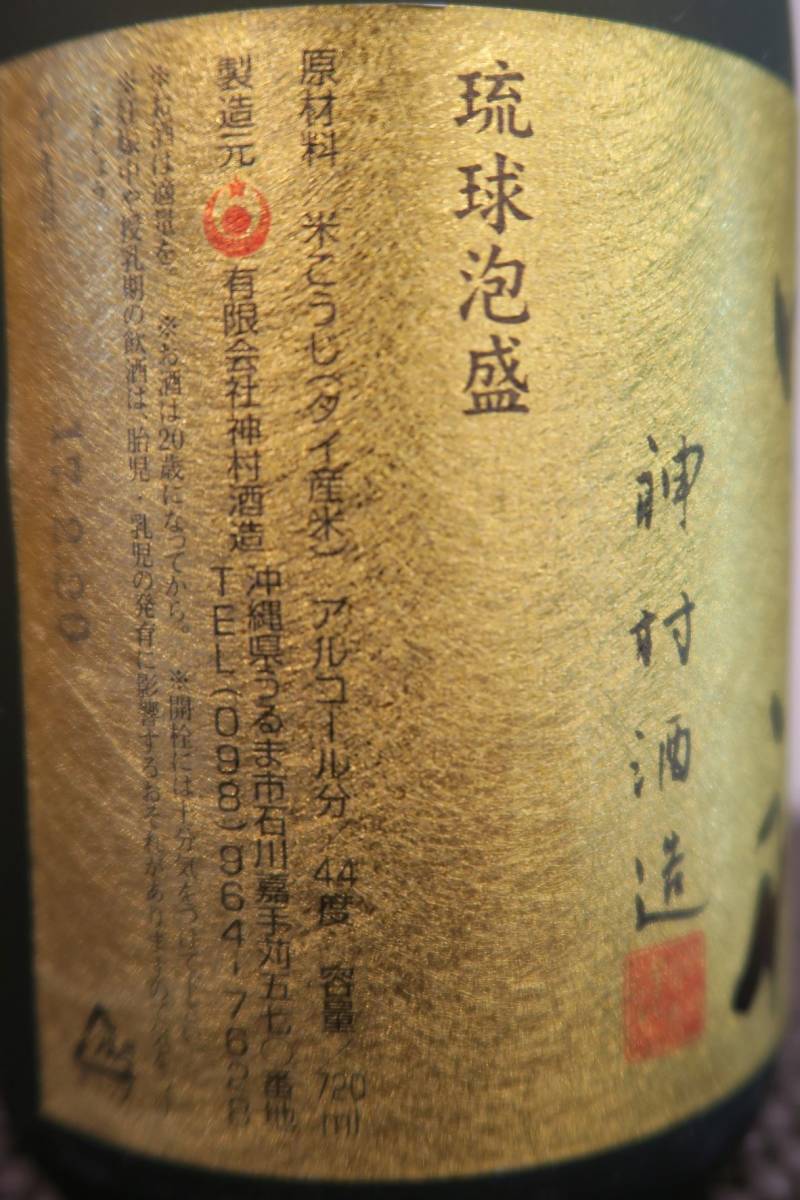 神村酒造
琉球泡盛
原材料 米こうじ(タイ産米) アルコール分/44度 容量/720ml
製造元 有限会社神村酒造 沖縄県うるま市石川嘉手苅五七〇番地
TEL(098)964-7628
※お酒は適量を。 ※お酒は20歳になってから。 ※開栓には十分気をつけて下さい。
※妊娠中や授乳期の飲酒は、胎児・乳児の発育に影響するおそれがありますので気を